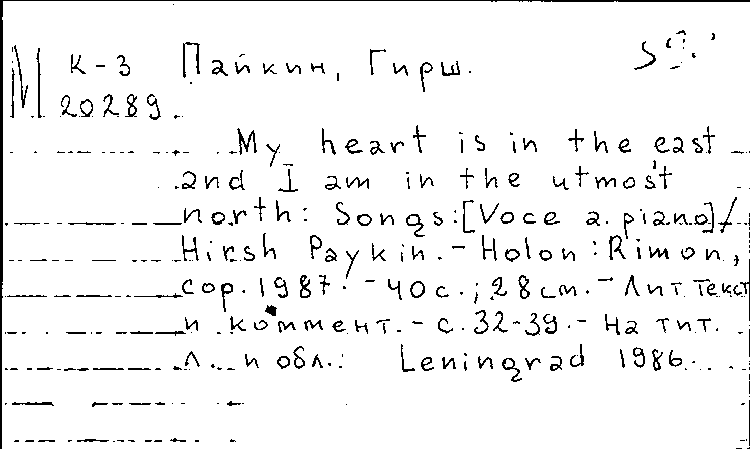 М К-3 Пайкин, Гирш.
20289.
My heart is in the east
and I am in the utmost
north: Songs:[Voce a. piano]/
Hirsh Paykin. - Holon: Rimon,
cop. 1987. - 40 с.; 28 см. - Лит. текст
и коммент. - с. 32-39. - На тит.
л. и обл.: Leningrad 1986.